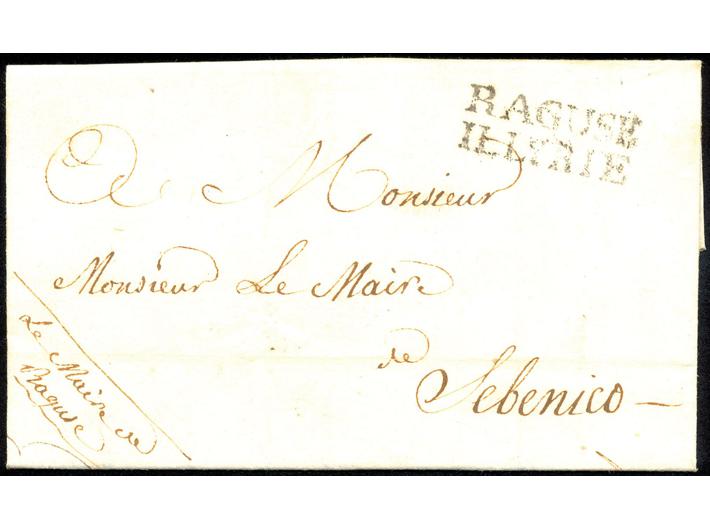 RAGUSE
ILLYRIE
A Monsieur
Monsieur Le Maire
de
Sebenico
Le Maire de
Raguse